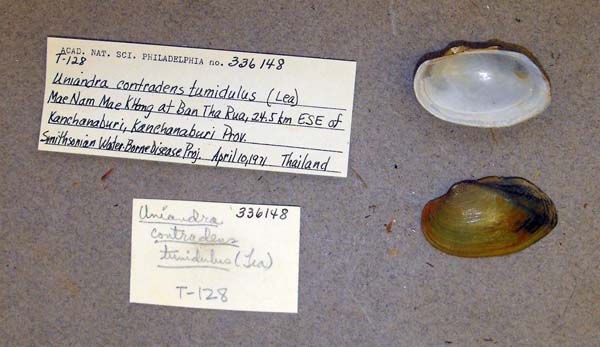 ACAD. NAT. SCI. PHILADELPHIA no. 336148
T-128
Uniandra contradens tumidulus (Lea)
Mae Nam Mae Khlong at Ban Tha Rua, 24.5 km ESE of
Kanchanaburi, Kanchanaburi Prov.
Smithsonian Water-Borne Disease Proj. April 10, 1971 Thailand
336148
Uniandra
contradens
tumidulus (Lea)
T-128